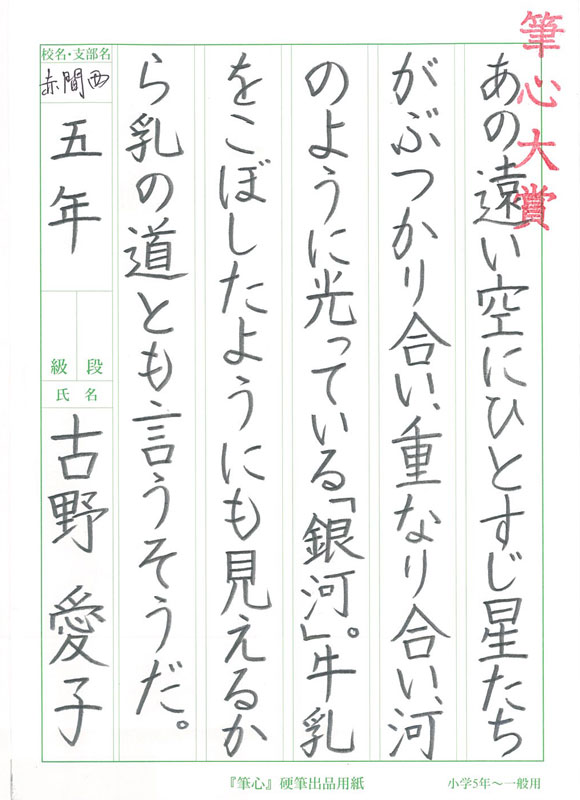 筆心大賞
あの遠い空にひとすじ星たち
がぶつかり合い、重なり合い、河
のように光っている「銀河」。牛乳
をこぼしたようにも見えるか
ら乳の道とも言うそうだ。
校名・支部名
赤間西
五年
段
級
氏名
古野 愛子
『筆心』硬筆出品用紙
小学5年～一般用